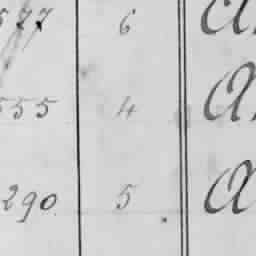 577 6 A
555 4 A
290 5 A